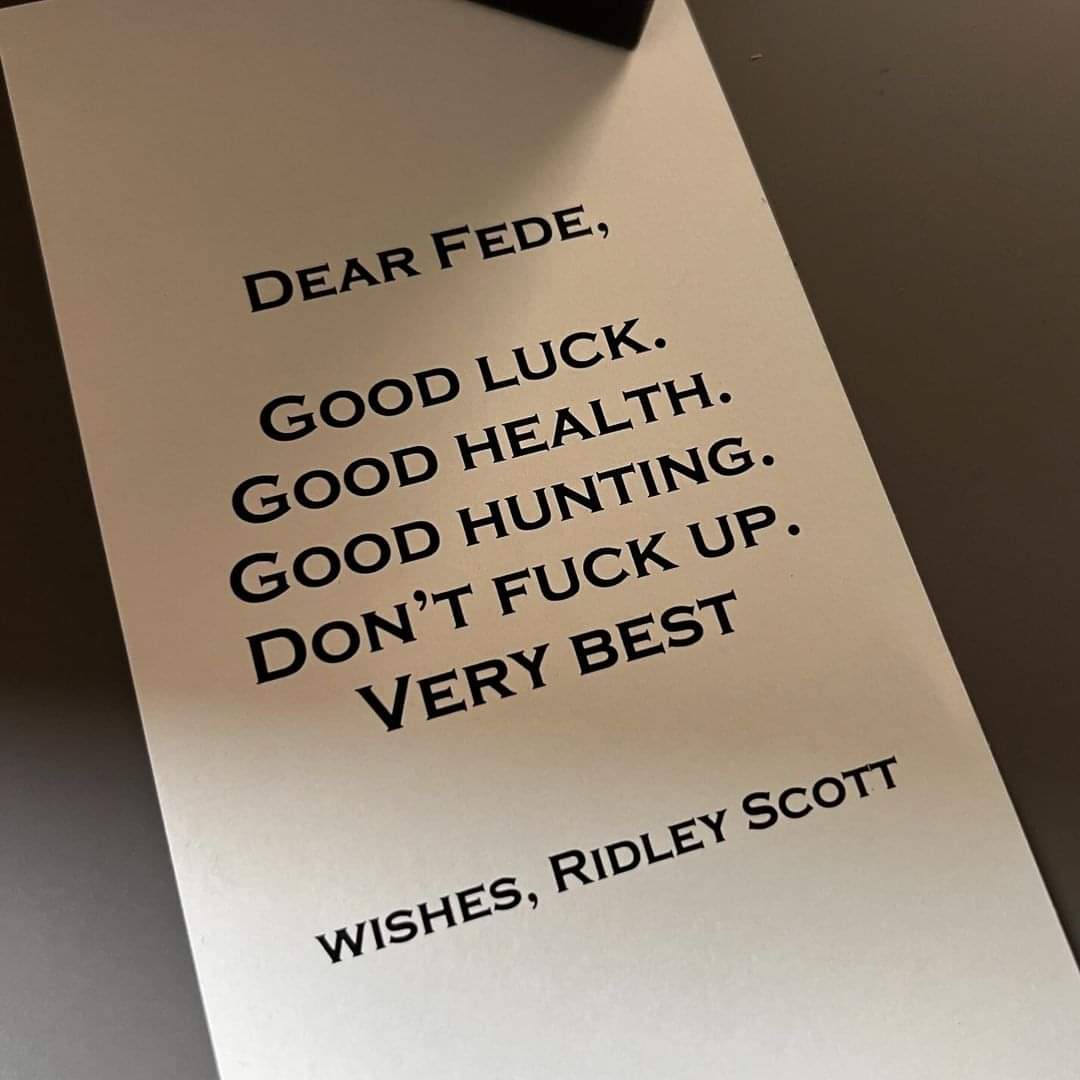 Dear Fede,
Good luck.
Good health.
Good hunting.
Don't fuck up.
Very best
wishes, Ridley Scott